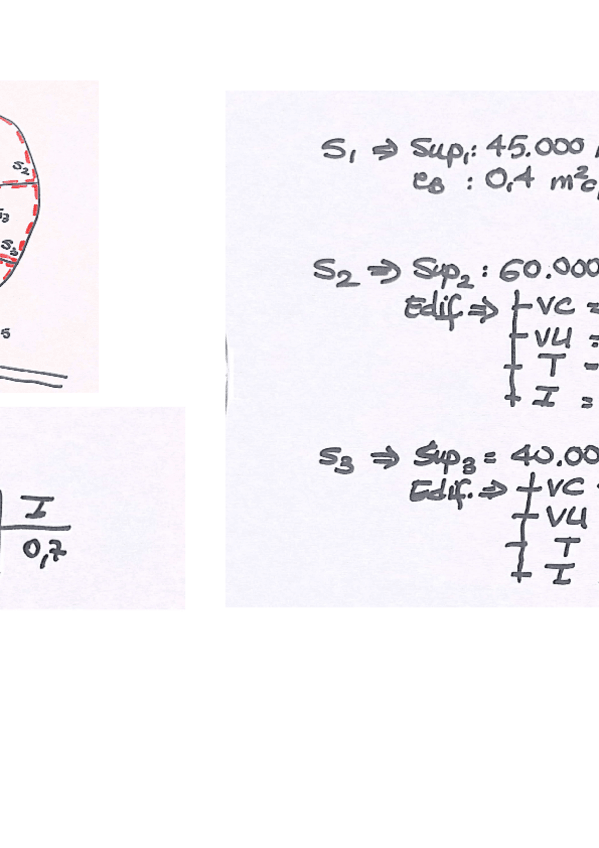 S2
S3
5
I
0,7
S1 ⇒ Sup1: 45.000
eB : 0,4 m²c
S2 ⇒ Sup2 : 60.000
Edif. ⇒ VC =
VU =
T -
I =
S3 ⇒ Sup3 = 40.00
Edif. ⇒ VC
VU
T
I